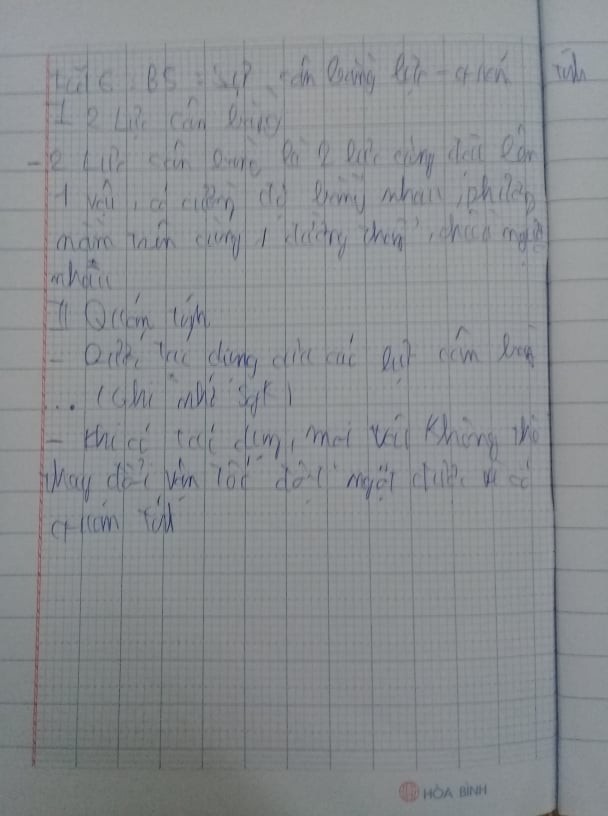 Tiết 6: B5: Sự cân bằng lực - quán tính
I 2 Lực cân bằng
- 2 Lực cân bằng là 2 lực cùng đặt lên
1 vật, có cường độ bằng nhau, phương
nằm trên cùng 1 đường thẳng, chiều ngược
nhau
II Quán tính
- Dưới tác dụng của các lực cân bằng
... (Ghi nhớ SgK)
- Khi có tác dụng, mọi vật không thể
thay đổi vận tốc đột ngột được vì có
quán tính
HÒA BÌNH